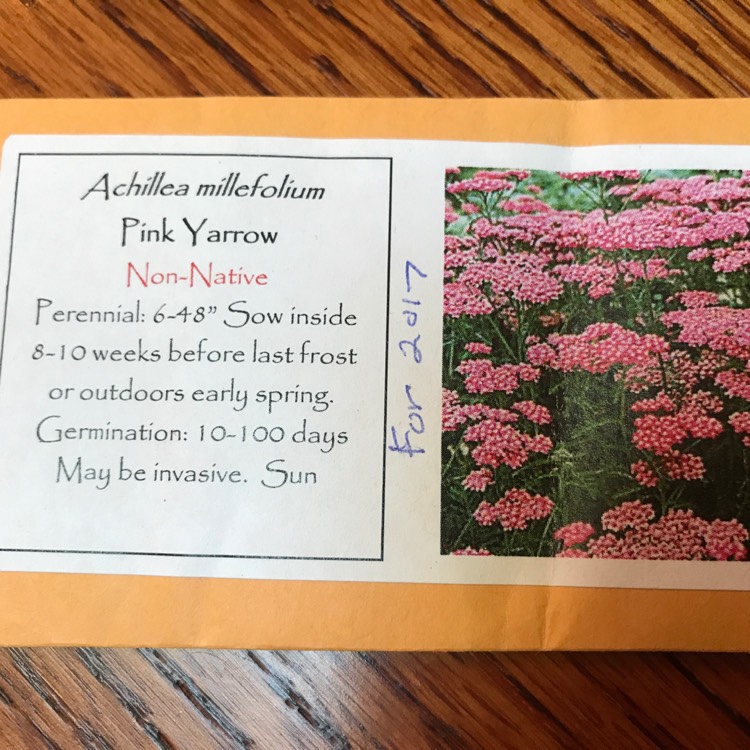 Achillea millefolium
Pink Yarrow
Non-Native
Perennial: 6-48" Sow inside
8-10 weeks before last frost
or outdoors early spring.
Germination: 10-100 days
May be invasive. Sun
For 2017